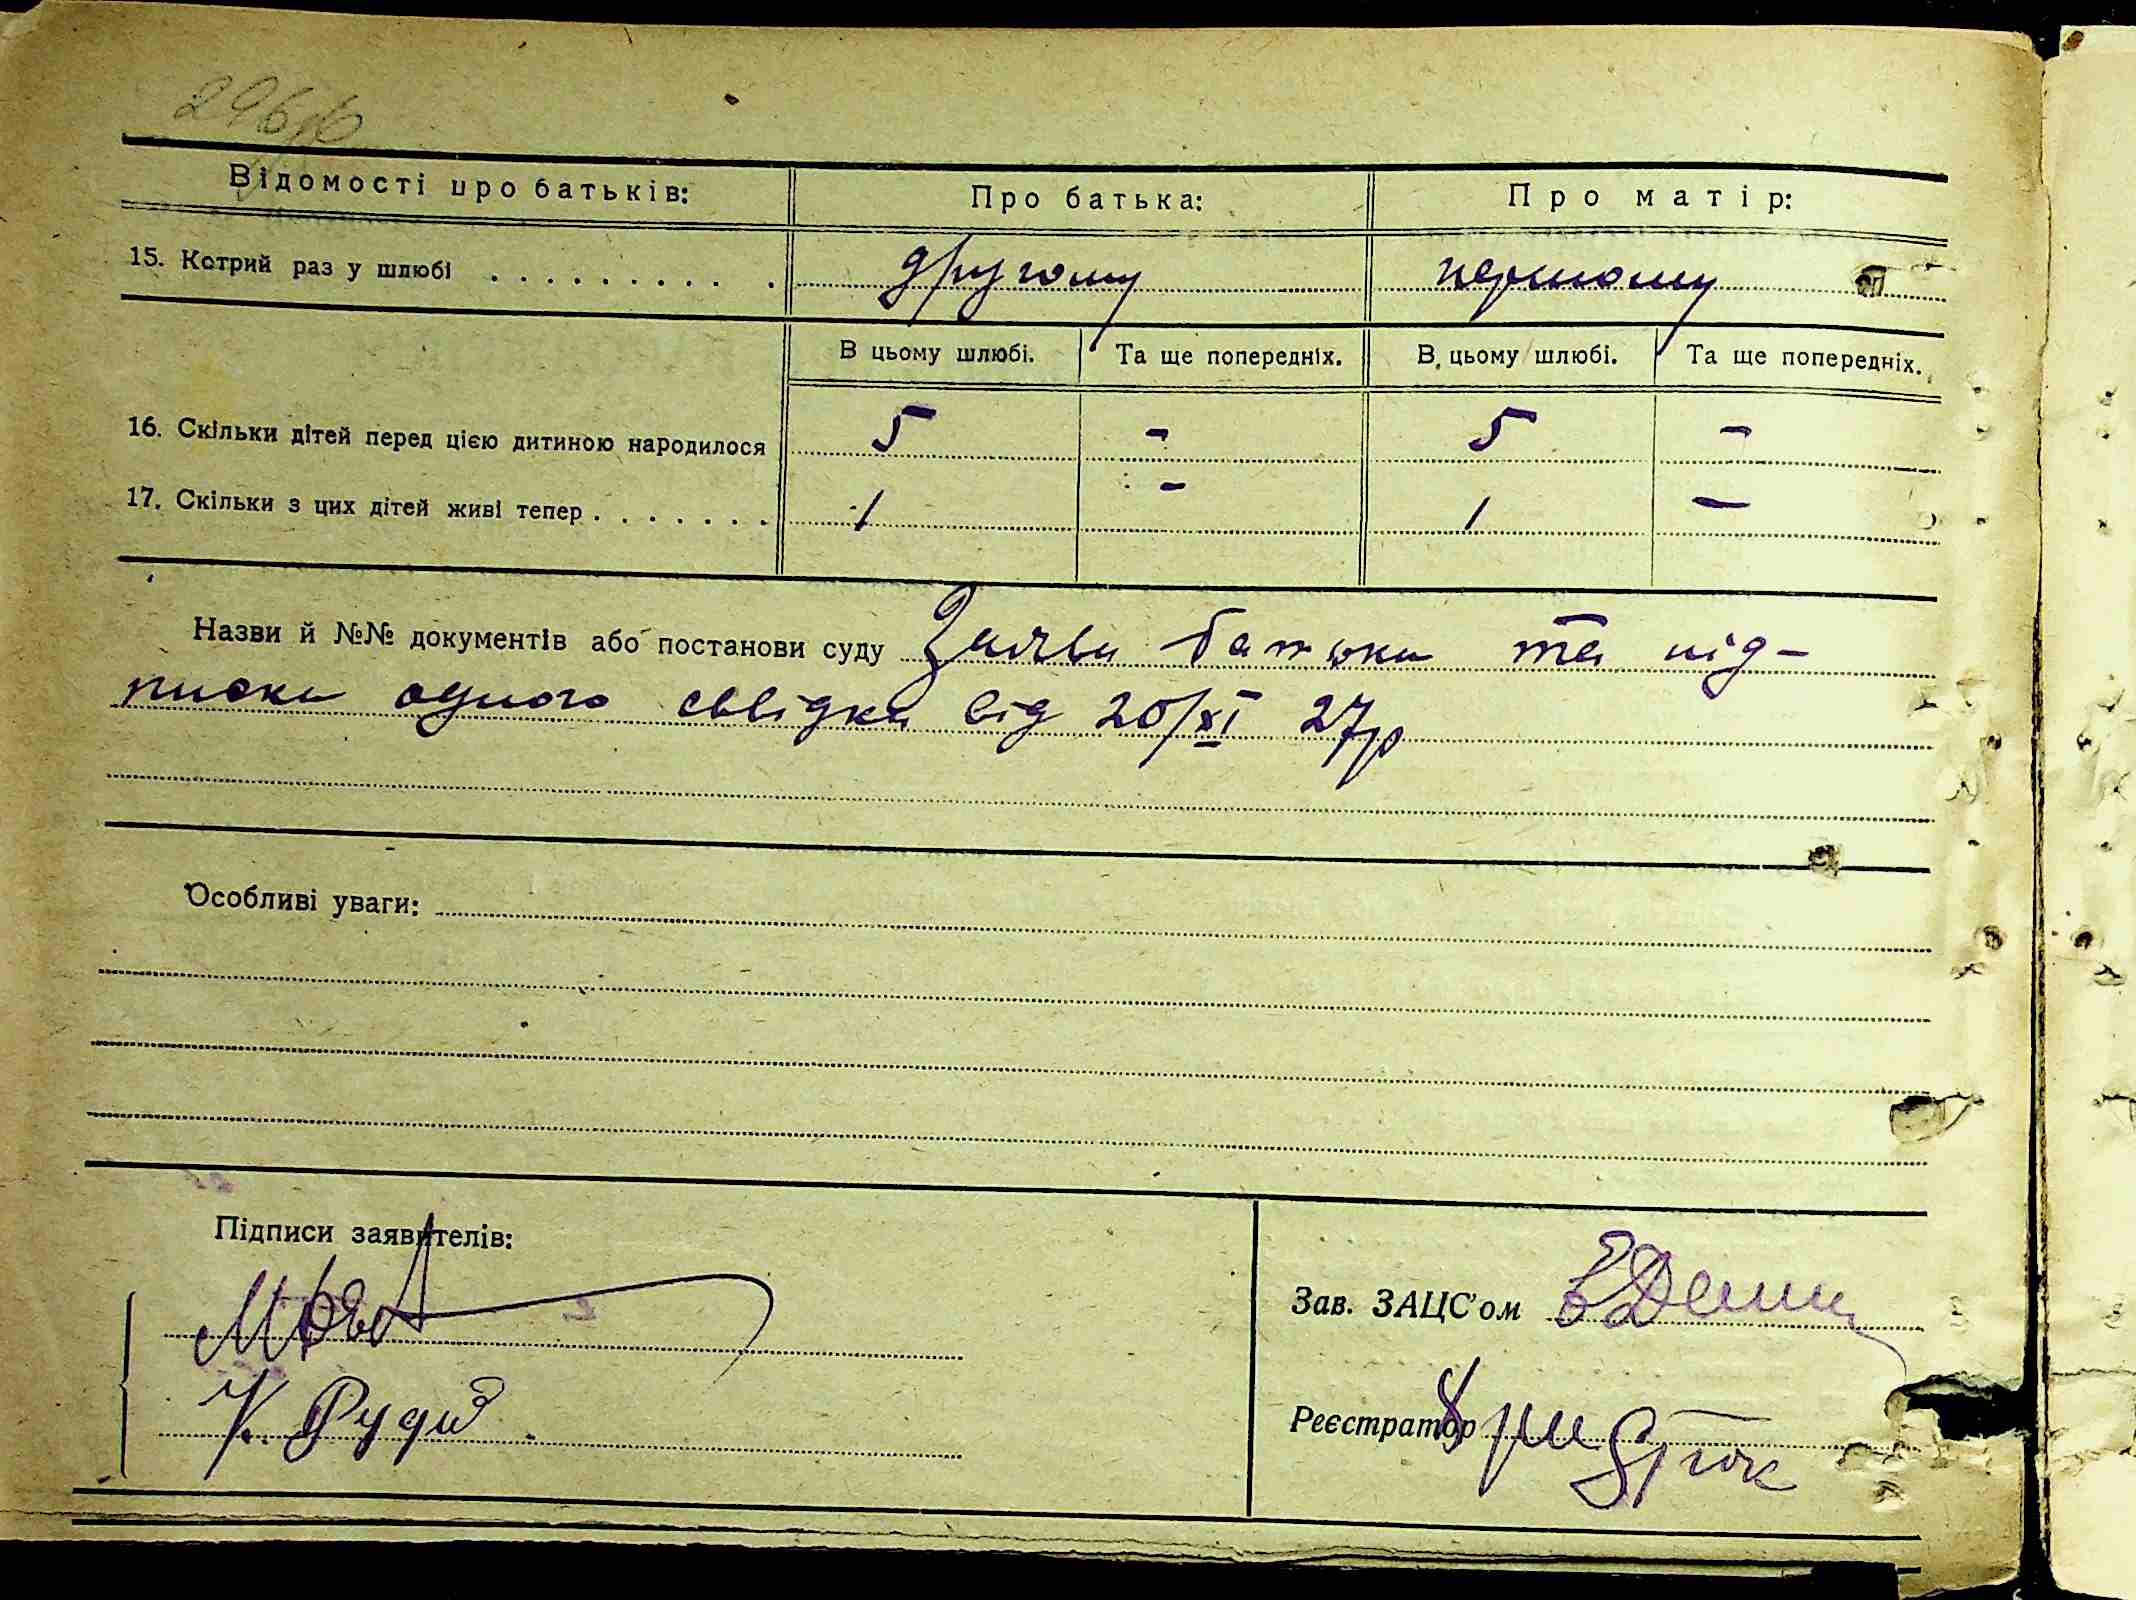 Відомості про батьків: Про батька: Про матір:
15. Котрий раз у шлюбі . . . . . . . . . . другому першому
В цьому шлюбі. Та ще попередніх. В цьому шлюбі. Та ще попередніх.
16. Скільки дітей перед цією дитиною народилося 5 - 5 -
17. Скільки з цих дітей живі тепер . . . . . . . 1 - 1 -
Назви й №№ документів або постанови суду Заява батька та під-
писка одного свідка від 20/XI 27р
Особливі уваги:
Підписи заявителів:
Зав. ЗАЦС'ом
К. Рудий
Реєстратор